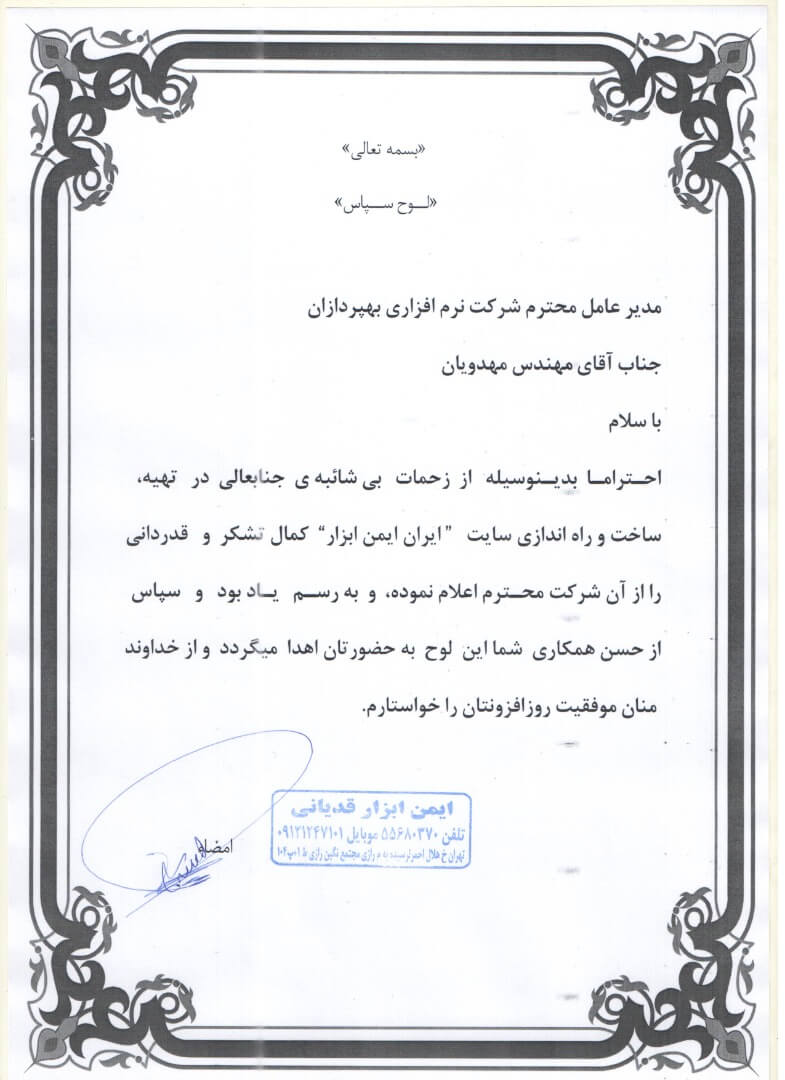 «بسمه تعالی»
«لـــوح ســـپاس»
مدیر عامل محترم شرکت نرم افزاری بهپردازان
جناب آقای مهندس مهدویان
با سلام
احـتـرامـا بدیـنوسیله از زحمات بی شائبه ی جنابعالی در تهیه،
ساخت و راه اندازی سایت "ایران ایمن ابزار" کمال تشکر و قدردانی
را از آن شرکت محـترم اعلام نموده، و به رسـم یـاد بود و سپاس
از حسن همکاری شما این لوح به حضورتان اهدا میگردد و از خداوند
منان موفقیت روزافزونتان را خواستارم.
ایمن ابزار قدیانی
تلفن ۵۵۶۸۰۳۷۰ موبایل ۰۹۱۲۱۲۴۷۱۰۱
تهران خ هلال احمر نرسیده به م رازی مجتمع نگین رازی ط ۱-پ۱۰۲
امضاء